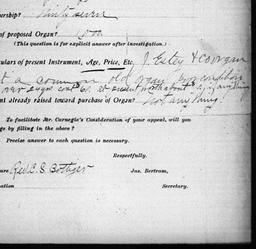 ership? Thirty seven
of proposed Organ?
(This question is for explicit answer after investigation.)
culars of present Instrument, Age, Price, Etc. J. Estey & Co organ
a common old organ
at present
nt already raised toward purchase of Organ? Not any thing
To facilitate Mr. Carnegie's Consideration of your appeal, will you
ge by filling in the above?
Precise answer to each question is necessary.
Respectfully,
ure Rev. C. S. Jas. Bertram,
ation Secretary.